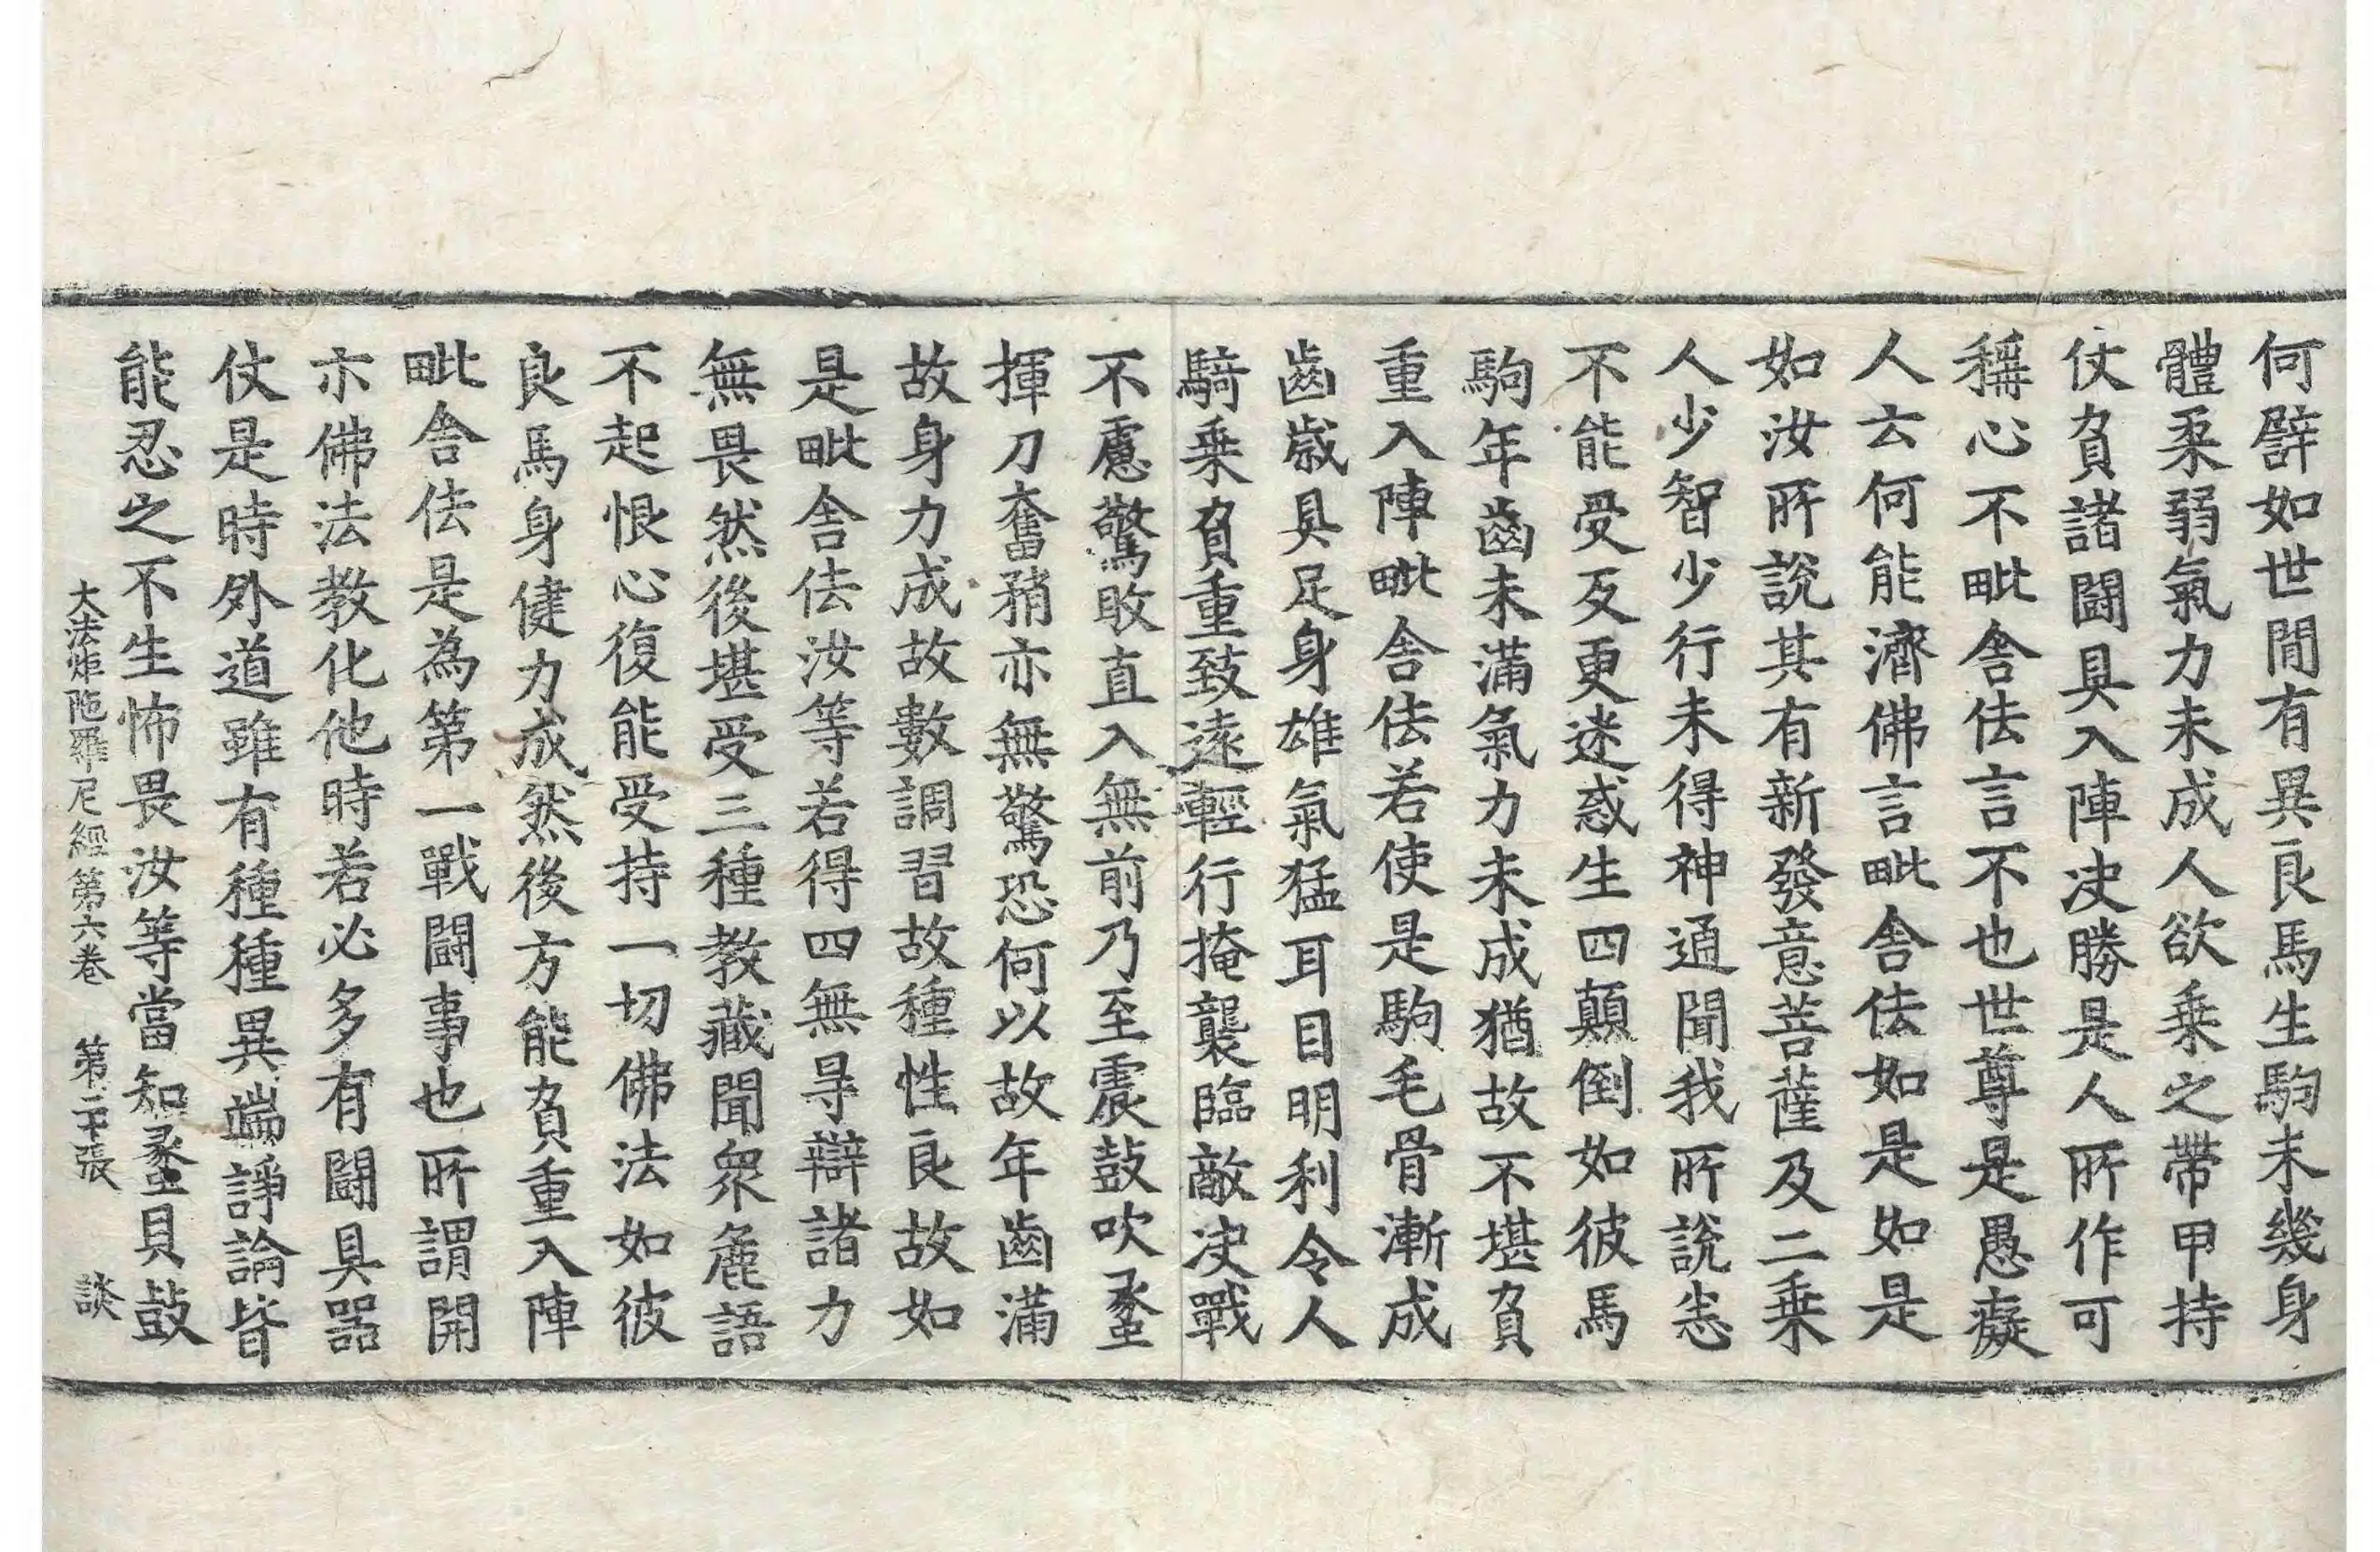 何譬如世間有異良馬生駒未幾身
體柔弱氣力未成人欲乗之帶甲持
仗負諸闘具入陣决勝是人所作可
稱心不毗舍佉言不也世尊是愚癡
人云何能濟佛言毗舍佉如是如是
如汝所說其有新發意菩薩及二乗
人少智少行未得神通聞我所說恙
不能受反更迷惑生四顛倒如彼馬
駒年齒未滿氣力未成猶故不堪負
重入陣毗舍佉若使是駒毛骨漸成
齒歲具足身雄氣猛耳目明利令人
騎乗負重致遠輕行掩襲臨敵决戰
不慮驚敗直入無前乃至震鼓吹䗍
揮刀奮矟亦無驚恐何以故年齒滿
故身力成故數調習故種性良故如
是毗舍佉汝等若得四無㝵辯諸力
無畏然後堪受三種教藏聞衆麁語
不起恨心復能受持一切佛法如彼
良馬身健力成然後方能負重入陣
毗舍佉是為第一戰闘事也所謂開
示佛法教化他時若必多有闘具器
仗是時外道雖有種種異端諍論皆
能忍之不生怖畏汝等當知䗍貝鼓
大法炬陁羅尼經第六卷 第二十張 談